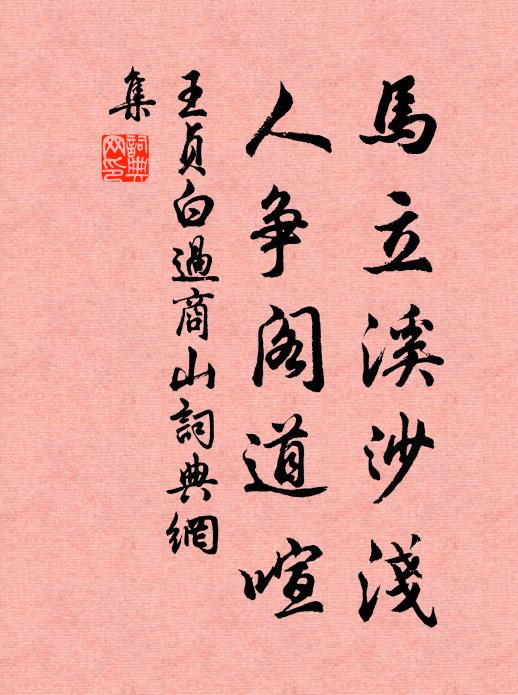 馬立溪沙淺
人争阁道喧
王贞白過商山詞典網
集
詞典
网印